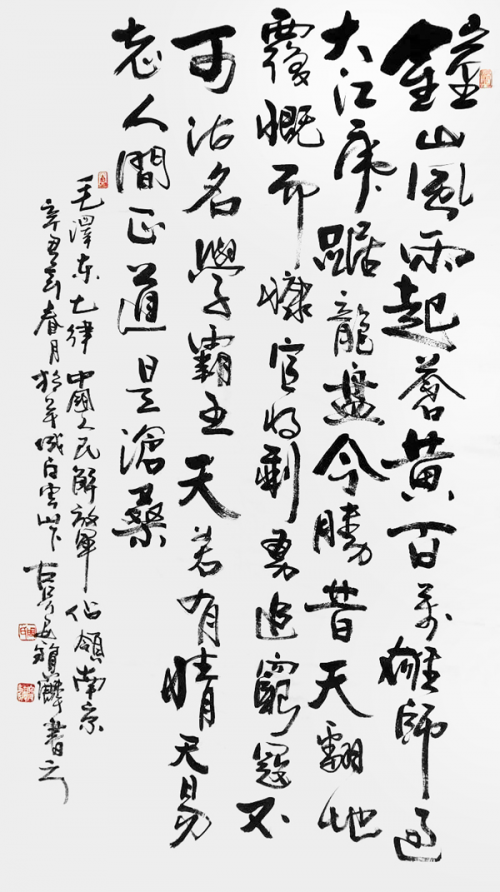 鐘山風雨起蒼黄百萬雄師過
大江虎踞龍盤今勝昔天翻地
覆慨而慷宜將剩勇追窮寇不
可沽名學霸王天若有情天易
老人間正道是滄桑
毛澤東七律 中國人民解放軍佔領南京
辛丑春月於羊城白雲山下 麟書之